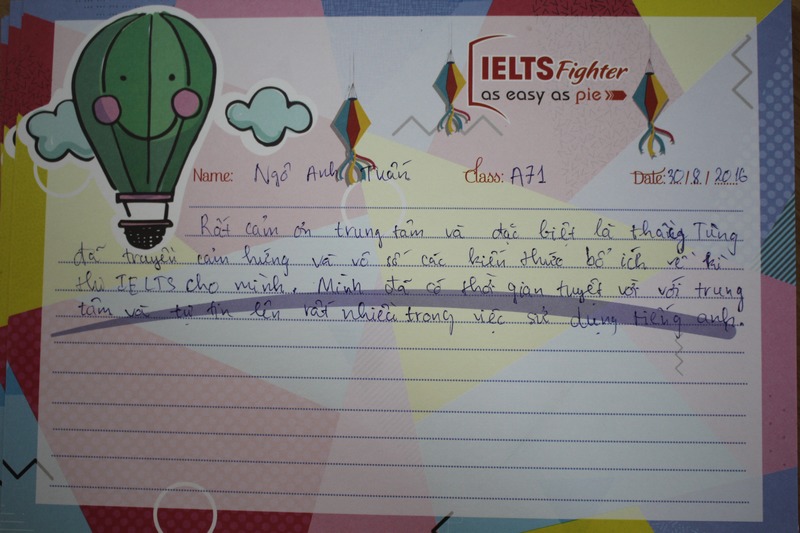 IELTS Fighter
as easy as pie
Name: Ngô Anh Tuấn Class: A71 Date: 30/8/2016
Rất cảm ơn trung tâm và đặc biệt là thằng Tùng
đã truyền cảm hứng và vô số các kiến thức bổ ích về kì
thi IELTS cho mình. Mình đã có thời gian tuyệt vời với trung
tâm và tự tin lên rất nhiều trong việc sử dụng tiếng anh.